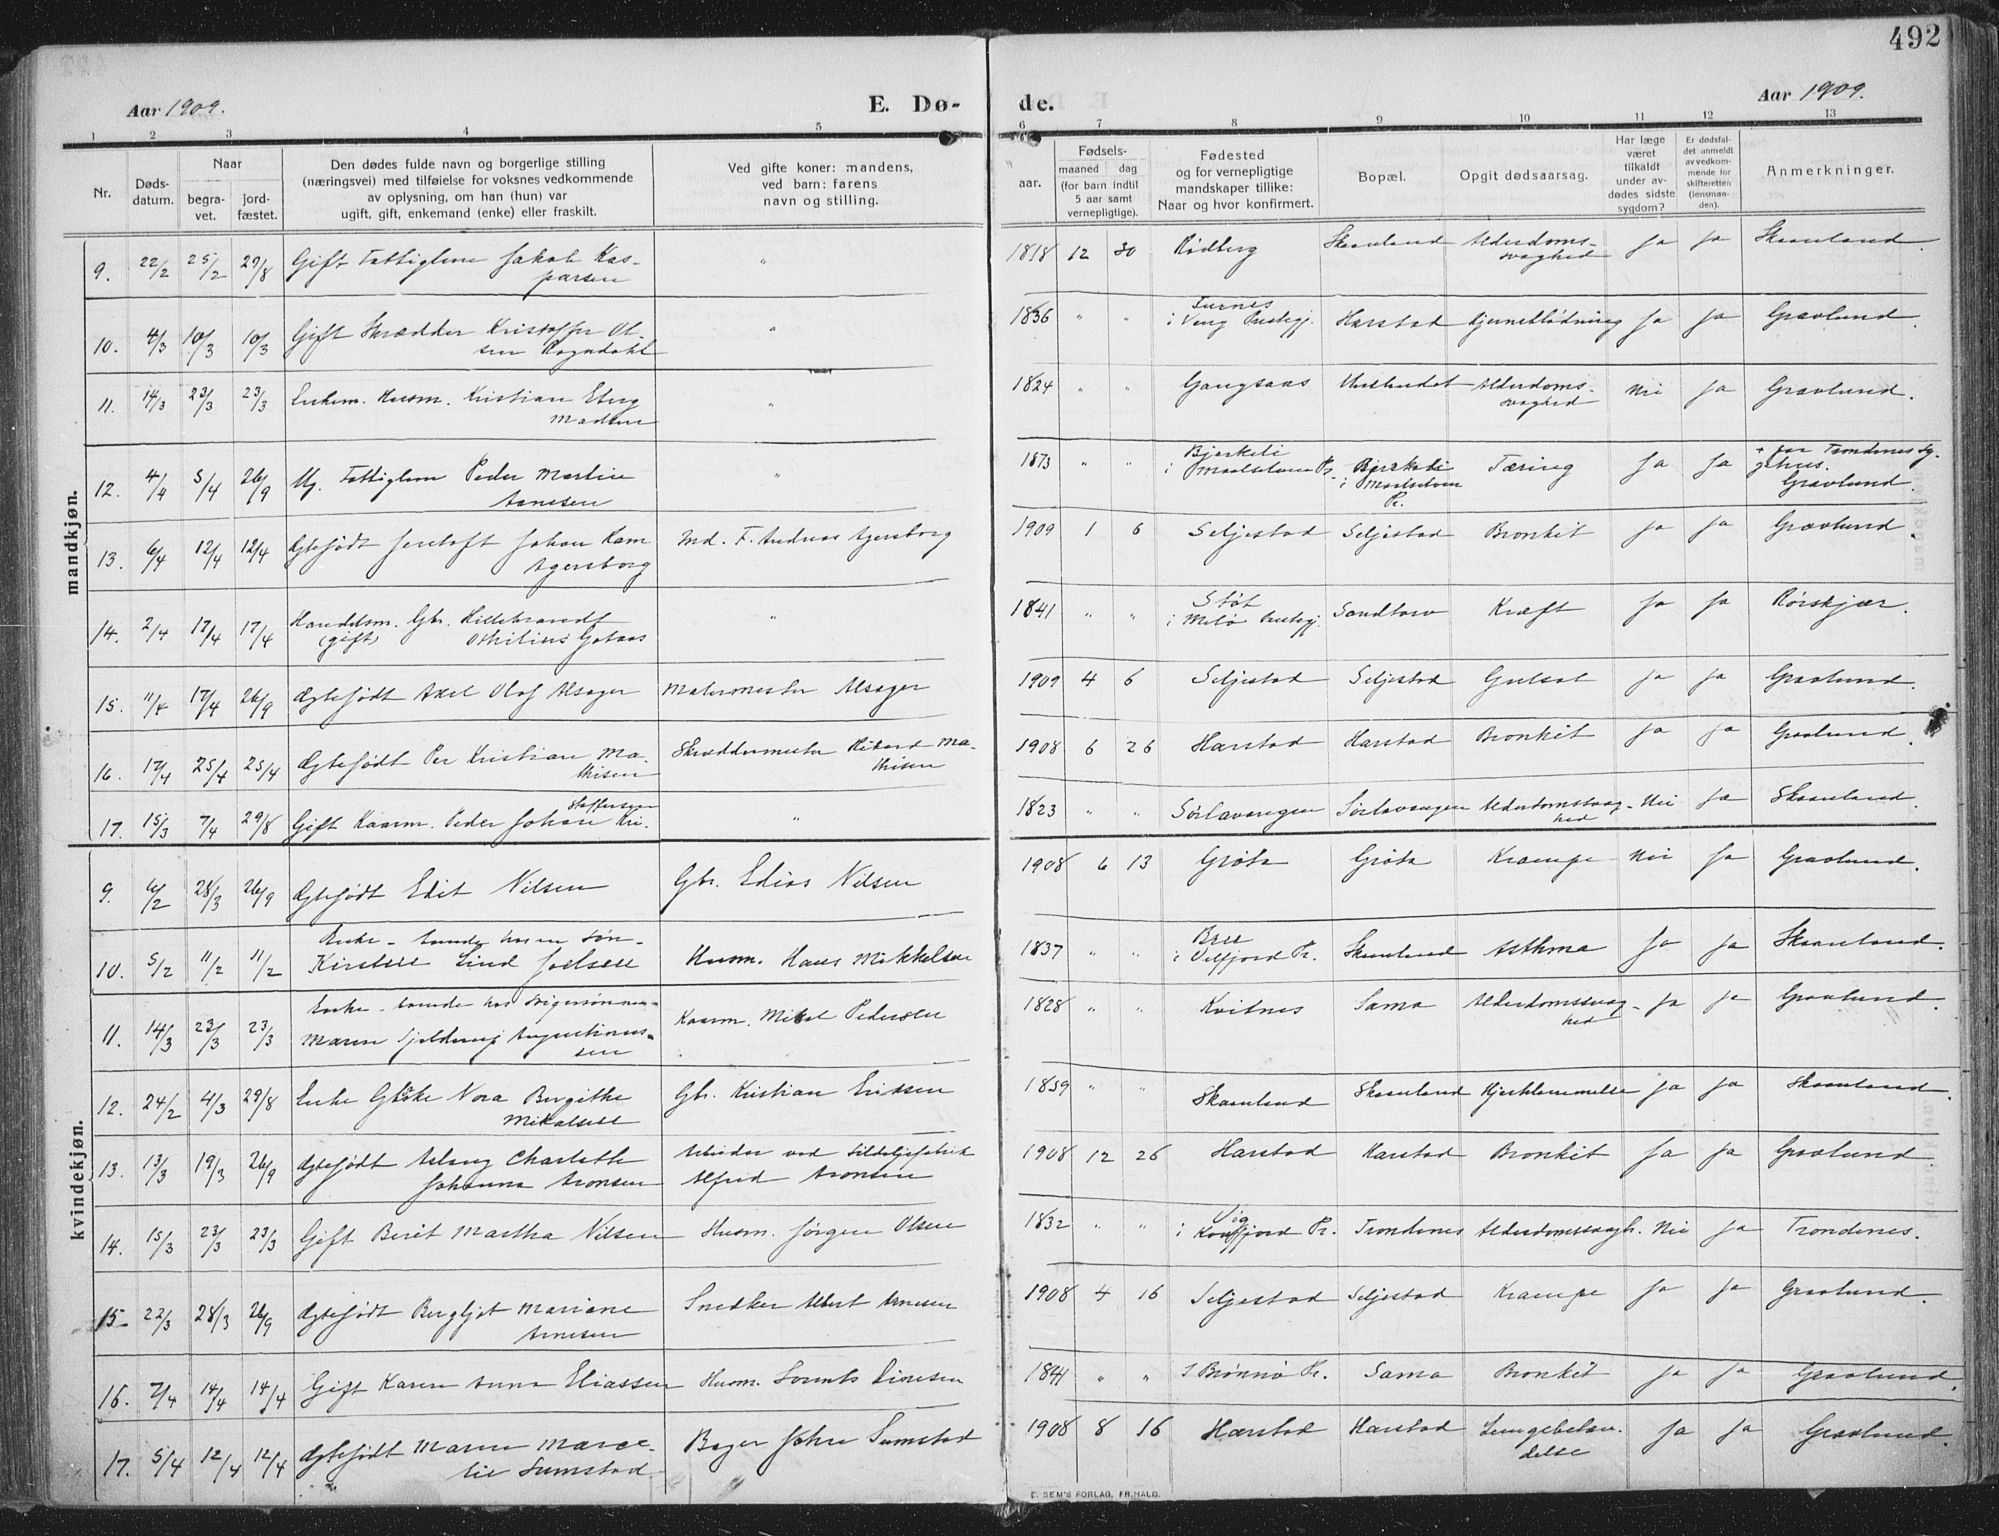 492
Aar 1909.
E. Dø-
de.
Aar 1909.
1 2 3 4 5 6 7 8 9 10 11 12 13
Nr.
Døds-
datum.
Naar
begra-
vet.
jord-
fæstet.
Den dødes fulde navn og borgerlige stilling
(næringsvei) med tilføielse for voksnes vedkommende
av oplysning, om han (hun) var
ugift, gift, enkemand (enke) eller fraskilt.
Ved gifte koner: mandens,
ved barn: farens
navn og stilling.
aar.
Fødsels-
maaned dag
(for barn indtil
5 aar samt
vernepligtige).
Fødested
og for vernepligtige
mandskaper tillike:
Naar og hvor konfirmert.
Bopæl.
Opgit dødsaarsag.
Har læge
været
tilkaldt
under av-
dødes sidste
sygdom?
Er dødsfal-
det anmeldt
av vedkom-
mende for
skifteretten
(lensman-
den).
Anmerkninger.
mandkjøn.
9. 22/2 25/2 29/8 Gift Fattiglem Jakob Kas-
parsen " 1818 12 30 Rødberg Skaanland Alderdoms-
svaghed Ja Ja Skaanland.
10. 4/3 10/3 10/3 Gift Skrædder Kristoffer Ol-
sen Rogndahl " 1836 " " i Veng Prestegj. Harstad Hjerneblødning Ja Ja Gravlund.
11. 14/3 23/3 23/3 Enkem. Husm. Kristian Eberg
Madsen " 1824 " " Gangsaas Alderdoms-
svaghed Nei Ja Gravlund.
12. 4/4 5/4 26/9 Ug. Fattiglem Peder Martin
Arnesen " 1873 " " Bjerkeli
i Maalselven Pr. Bjerkeli
i Maalselven
Pr. Tæring Ja Ja + paa Trondenes sy-
gehus.
Gravlund.
13. 6/4 12/4 12/4 Ægtefødt Jentoft Johan Ram
Agersborg Md. F. Andreas Agersborg 1909 1 6 Seljestad Seljestad Bronkit Ja Ja Gravlund.
14. 2/4 17/4 17/4 Handelsm. Gbr. Hillebrandt
(gift) Othilius Gotaas " 1841 " " Støt
i Melø Prestegj. Sandtorv Kræft Ja Ja Rørskjær.
15. 11/4 17/4 26/9 Ægtefødt Axel Olaf Alsager Malermester Alsager 1909 4 6 Seljestad Seljestad Gulsot Ja Ja Gravlund.
16. 17/4 25/4 25/4 Ægtefødt Per Kristian Ma-
thisen Skræddermester Rikard Ma-
thisen 1908 6 26 Harstad Harstad Bronkit Ja Ja Gravlund.
17. 15/3 7/4 29/8 Gift Kaarm. Peder Johan Kri-
stoffersen " 1823 " " Sørlavangen Sørlavangen Alderdomssvag-
hed Nei Ja Skaanland.
kvindekjøn.
9. 6/2 28/3 26/9 Ægtefødt Edit Nilsen Gbr. Edias Nilsen 1908 6 13 Grøtz Grøtz Krampe Nei Ja Gravlund.
10. 5/2 11/2 11/2 Enke - boende hos en søn -
Kirsten Lind Joelsen Husm. Hans Mikkelsen 1837 " " i Velfjord Pr. Skaanland Asthma Ja Ja Skaanland.
11. 14/3 23/3 23/3 Enke - boende hos svigersønnen -
Maren Gjeldernæs Augustinus-
sen Kaarm. Mikal Pedersen 1828 " " Kvitnes Sama Alderdomssvag-
hed Ja Ja Gravlund.
12. 24/2 4/3 29/8 Enke Gjøke Nora Bergithe
Mikalsen Gbr. Kristian Eriksen 1839 " " Skaanland Skaanland Hjerteklemmelse Ja Ja Skaanland.
13. 13/3 19/3 26/9 Ægtefødt Aslaug Charlotte
Johanna Aronsen Arbeider ved Sildoljefabrik
Alfred Aronsen 1908 12 26 Harstad Harstad Bronkit Ja Ja Gravlund.
14. 15/3 23/3 23/3 Gift Berit Martha Nilsen Husm. Jørgen Olsen 1832 " " Vig
i Kvæfjord Pr. Trondenes Alderdomssvagh. Nei Ja Trondenes.
15 22/3 28/3 26/9 Ægtefødt Bergljot Mariane
Arnesen Snedker Albert Arnesen 1908 4 16 Seljestad Seljestad Krampe Ja Ja Gravlund.
16. 7/4 14/4 14/4 Gift Karen Anna Eliassen Husm. 1841 " " I Brønnø Pr. Sama Bronkit Ja Ja Gravlund.
17. 5/4 12/4 12/4 Ægtefødt Maren Marce-
lie Sumstad Bager Johan Sumstad 1908 8 16 Harstad Harstad Lungebetæn-
delse Ja Ja Gravlund.
E. SEM'S FORLAG, FR.HALD.